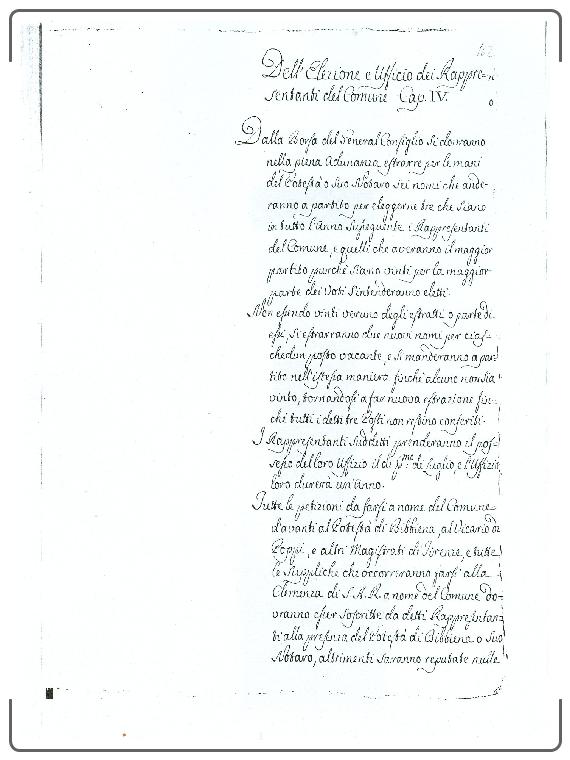 Dell'Elezione e Uffizio dei Rappre-
sentanti del Comune Cap. IV.
Dalla Borsa del General Consiglio si dovranno
nella piena Adunanza estrarre per le mani
del Potestà o suo Notaro sei nomi che ande-
ranno a partito per eleggerne tre che siano
in tutto l'Anno susseguente i Rappresentanti
del Comune, e quelli che averanno il maggior
partito purchè siano vinti per la maggior
parte dei Voti s'intenderanno eletti.
Non essendo vinti veruno degli estratti o parte di
essi, si estrarranno due nuovi nomi per cias-
chedun posto vacante, e si manderanno a par-
tito nell'istessa maniera finchè alcuno non sia
vinto, tornandosi a far nuova estrazione fin-
chè tutti i detti tre Posti non restino conferiti.
I Rappresentanti suddetti prenderanno il pos-
sesso del loro Uffizio il dì p.mo di Luglio, e l'Uffizio
loro durerà un'anno.
Tutte le petizioni da farsi a nome del Comune
davanti al Potestà di Bibbiena, al Vicario di
Poppi, e altri Magistrati di Firenze, e tutte
le Suppliche che occorreranno farsi alla
Clemenza di S.A.R. a nome del Comune do-
vranno esser soscritte da detti Rappresentan-
ti alla presenza del Potestà di Bibbiena o suo
Notaro, altrimenti saranno reputate nulle